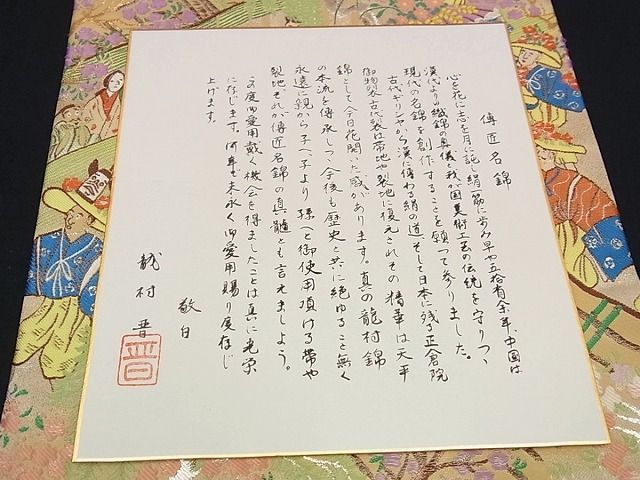 傳匠名錦
心を花に志を月に託し絹一筋に歩み早や五拾有余年中国は
漢代よりの織錦の奥儀と我が国美術工芸の伝統を守りつゝ
現代の名錦を創作することを願って参りました。
古代ギリシャから漢に傳わる絹の道そして日本に残る正倉院
御物裂古代裂は帯地や裂地に復元されその精華は天平
錦として今日花開いた感があります。真の龍村錦
の本流を傳承しつゝ今後も歴史と共に絶ゆること無く
永遠に親から子へ子より孫へと御使用頂ける帯や
裂地それが傳匠名錦の真髄とも言えましょう。
この度御愛用戴く機会を得ましたことは真に光栄
に存じます。何卒末永く御愛用賜り度存じ
上げます。
敬白
龍村晋
晋